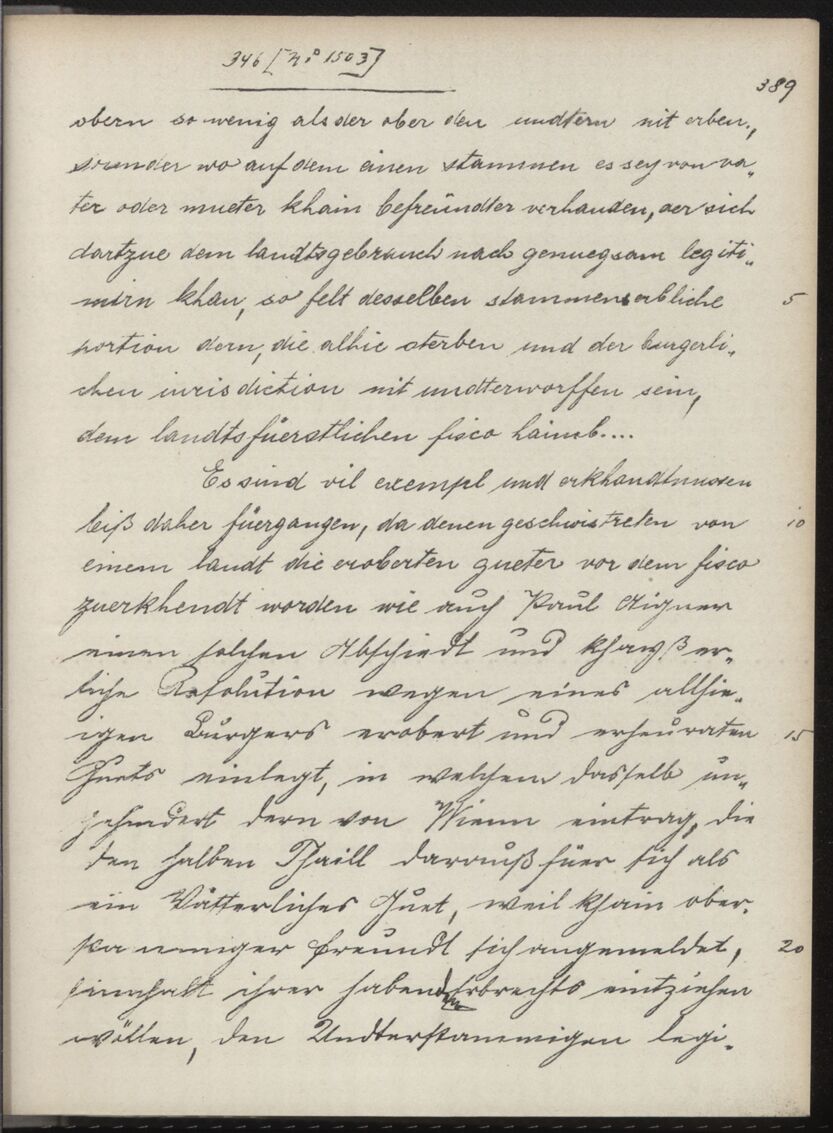 346 [No 1503]
389
obern so wenig als der ober den undtern nit erben,
sonnder wo auf dem einen stammen es sey von va„
ter oder mueter khain befreündter verhanden, der sich
dartzue dem landtsgebrauch nach genuegsam legiti„
mirn khan, so felt desselben stammens erbliche 5
portion dern, die alhie sterben und der burgerli„
chen jurisdiction nit undterworffen sein,
dem landtsfüerstlichen fisco haimb....
Es sind vil exempl und erkhandtnussen
biß daher füergangen, da denen geschwistreten von 10
einem landt die eroberten gueter vor dem fisco
zuerkhendt worden wie auch Paul Aigner
einen solchen Abschiedt und khayßer„
liche Resolution wegen eines allhie„
igen Burgers erobert und erheuraten 15
Guets einlegt, in welchem dasselb un„
gehindert dern von Wienn eintrag, die
den halben Thaill darauß füer sich als
ein Vätterliches Guet, weil khain ober„
stammiger freundt sich angemeldet, 20
innhalt ihrer habenden Erbrechts eintziehen
wöllen, den Undterstammigen legi„